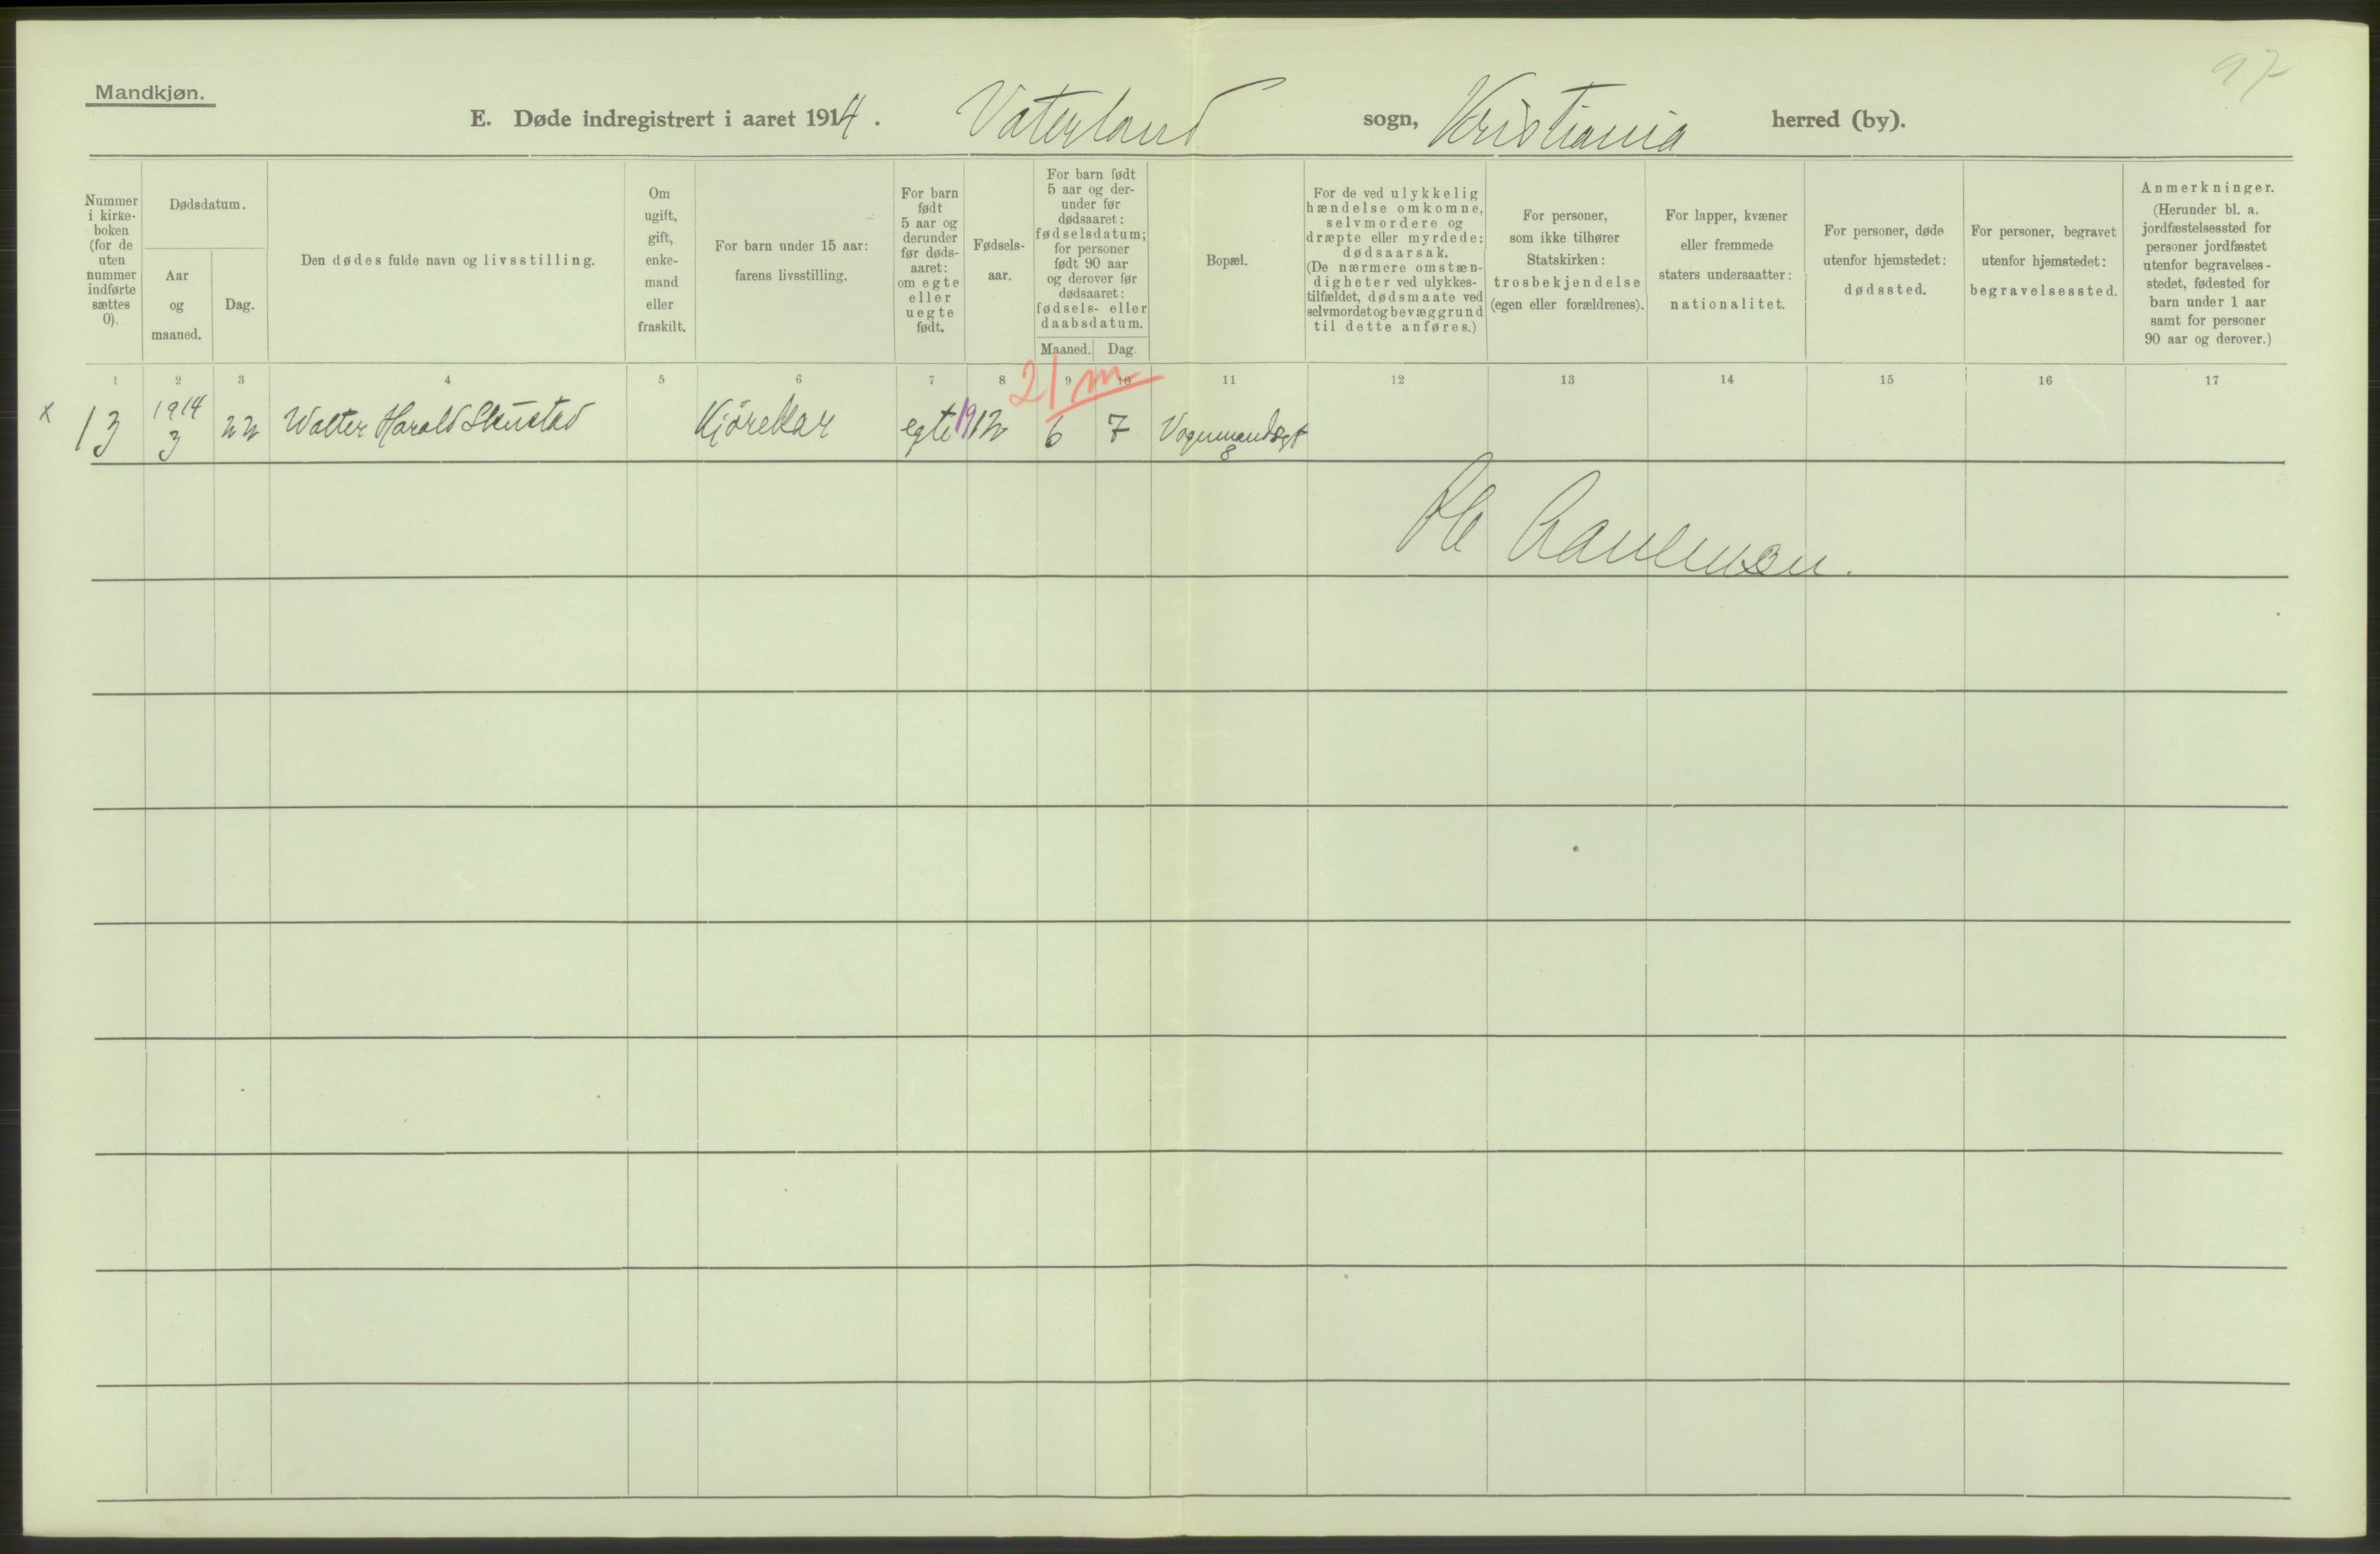 97
Mandkjøn.
E. Døde indregistrert i aaret 1914. Vaterland sogn, Kristiania herred (by).
Nummer
i kirke-
boken
(for de
uten
nummer
indførte
sættes
0).
Dødsdatum.
Aar
og
maaned.
Dag.
Den dødes fulde navn og livsstilling.
Om
ugift,
gift,
enke-
mand
eller
fraskilt.
For barn under 15 aar:
farens livsstilling.
For barn
født
5 aar og
derunder
før døds-
aaret:
om egte
eller
uegte
født.
Fødsels-
aar.
For barn født
5 aar og der-
under før
dødsaaret:
fødselsdatum;
for personer
født 90 aar
og derover før
dødsaaret:
fødsels- eller
daabsdatum.
Maaned. Dag.
Bopæl.
For de ved ulykkelig
hændelse omkomne,
selvmordere og
dræpte eller myrdede:
dødsaarsak.
(De nærmere omstæn-
digheter ved ulykkes-
tilfældet, dødsmaate ved
selvmordet og bevæggrund
til dette anføres.)
For personer,
som ikke tilhører
Statskirken:
trosbekjendelse
(egen eller forældrenes).
For lapper, kvæner
eller fremmede
staters undersaatter:
nationalitet.
For personer, døde
utenfor hjemstedet:
dødssted.
For personer, begravet
utenfor hjemstedet:
begravelsessted.
Anmerkninger.
(Herunder bl. a.
jordfæstelsessted for
personer jordfæstet
utenfor begravelses-
stedet, fødested for
barn under 1 aar
samt for personer
90 aar og derover.)
1 2 3 4 5 6 7 8 9 10 11 12 13 14 15 16 17
21 m
x 13 1914 3 22 Walter Harald Skustad Kjørekar egte 1912 6 7 Vognmandsgt 8